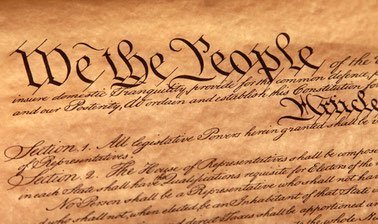 We the People of the
insure domestic Tranquility, provide for the common defence, p
and our Posterity, do ordain and establish this Constitution for
Article
Section 1. All legislative Powers herein granted shall be v
of Representatives.
Section 2. The House of Representatives shall be compose
in each State shall have Qualifications requisite for Electors of the
No Person shall be a Representative who shall not hav
and who shall not, when elected, be an Inhabitant of that State
direct Taxes shall be apportioned a